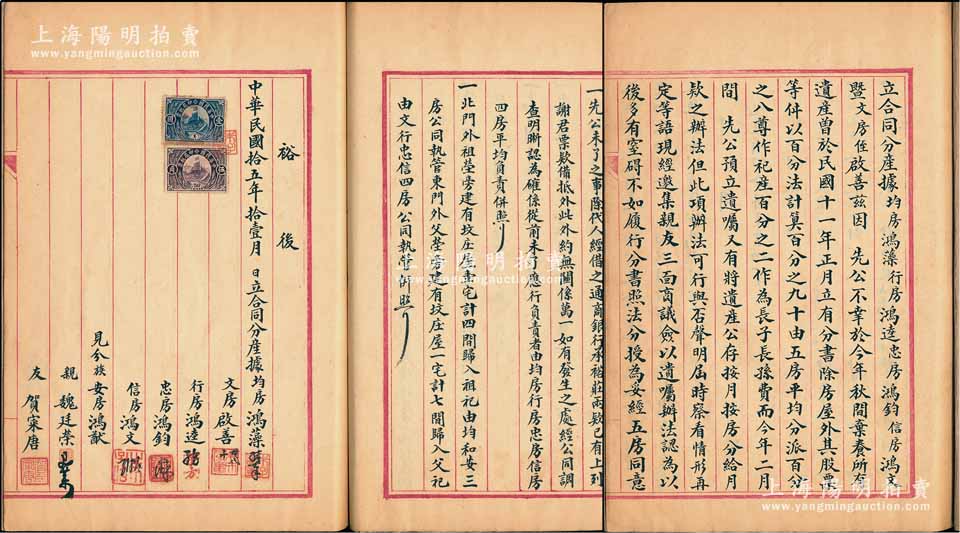 立合同分產據均房鴻藻行房鴻逵忠房鴻鈞信房鴻文
暨文房侄啟善茲因 先公不幸於今年秋間棄養所至
遺産曾於民國十一年正月立有分書除房屋外其股票
等件以百分法計算百分之九十由五房平均分派百分
之八尊作祀產百分之二作為長子長孫費而今年二月
間 先公預立遺囑又有將遺產公存按月按房分給月
欵之辦法但此項辦法可行與否聲明屆時察看情形再
定等語現經邀集親友三面商議僉以遺囑辦法認為以
後多有窒碍不如履行分書照法分授為妥經五房同意
一先公未了之事除代人經借之通商銀行承裕莊兩欵已有上列
謝君票欵備抵外此外約無關係萬一如有發生之處經公同調
查明晰認為確係從前未了應行負責者由均房行房忠房信房
四房平均負責併照
一北門外祖塋旁建有坟庄屋壹宅計四間歸入祖祀由均和安三
房公同執管東門外父塋旁建有坟庄屋一宅計七間歸入父祀
由文行忠信四房公同執管併照
裕後
中華民國拾五年拾壹月 日立合同分產據均房鴻藻
文房啟善
行房鴻逵
忠房鴻鈞
信房鴻文
見分族安房鴻猷
親魏廷榮
友賀寀唐
上海陽明拍賣
www.yangmingauction.com
上海陽明拍賣
www.yangmingauction.com
上海陽明拍賣
www.yangmingauction.com